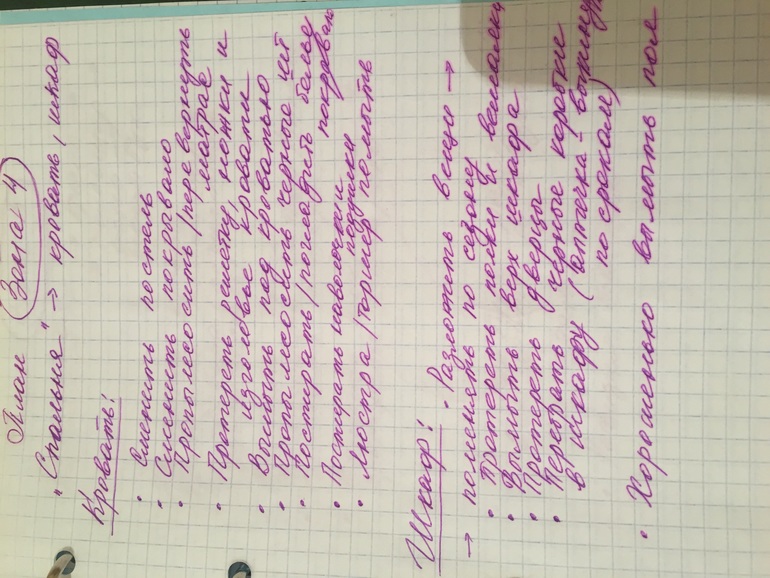 План Зона 4
„Спальня" → кровать, шкаф
Кровать!
• Сменить постель
• Сменить покрывало
• Пропылесосить / перевернуть
матрас
• Протереть решетку, ножки и
изголовье кровати
• Вымыть под кроватью
• Пропылесосить черные
• Постирать / погладить белье
• Постирать наволочки покрывало
подушки
• Люстра / торшер помыть
Шкаф! • Разложить вещи →
→ поменять по сезону
• Протереть полки и вешалки
• Вымыть верх шкафа
• Протереть дверцы
• Перебрать черные коробки
в шкафу (аптечка-
по срокам)
• Хорошенько вымыть пол